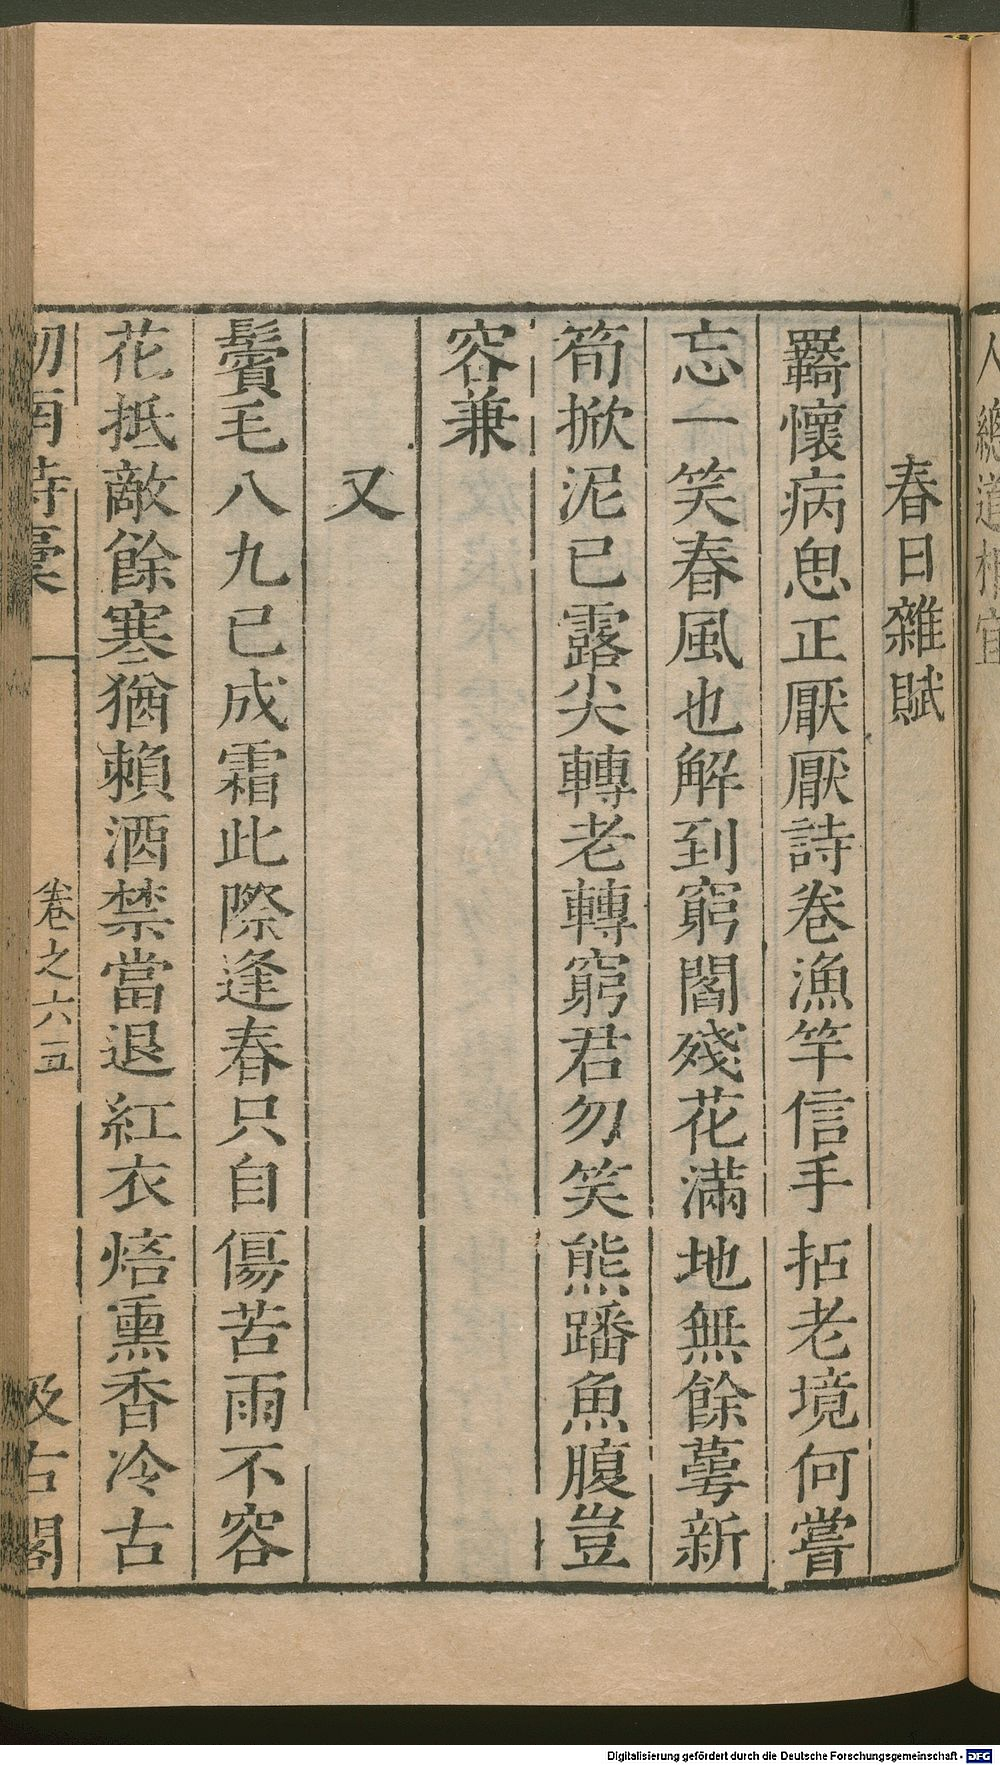 人總道相宜
春日雜賦
羇懷病思正厭厭詩卷漁竿信手拈老境何嘗
忘一笑春風也解到窮閻殘花滿地無餘蕚新
筍掀泥已露尖轉老轉窮君勿笑熊蹯魚腹豈
容兼
又
鬢毛八九已成霜此際逢春只自傷苦雨不容
花抵敵餘寒猶賴酒禁當退紅衣焙熏香冷古
剑南詩稾 卷之六五 汲古閣
Digitalisierung gefördert durch die Deutsche Forschungsgemeinschaft - DFG